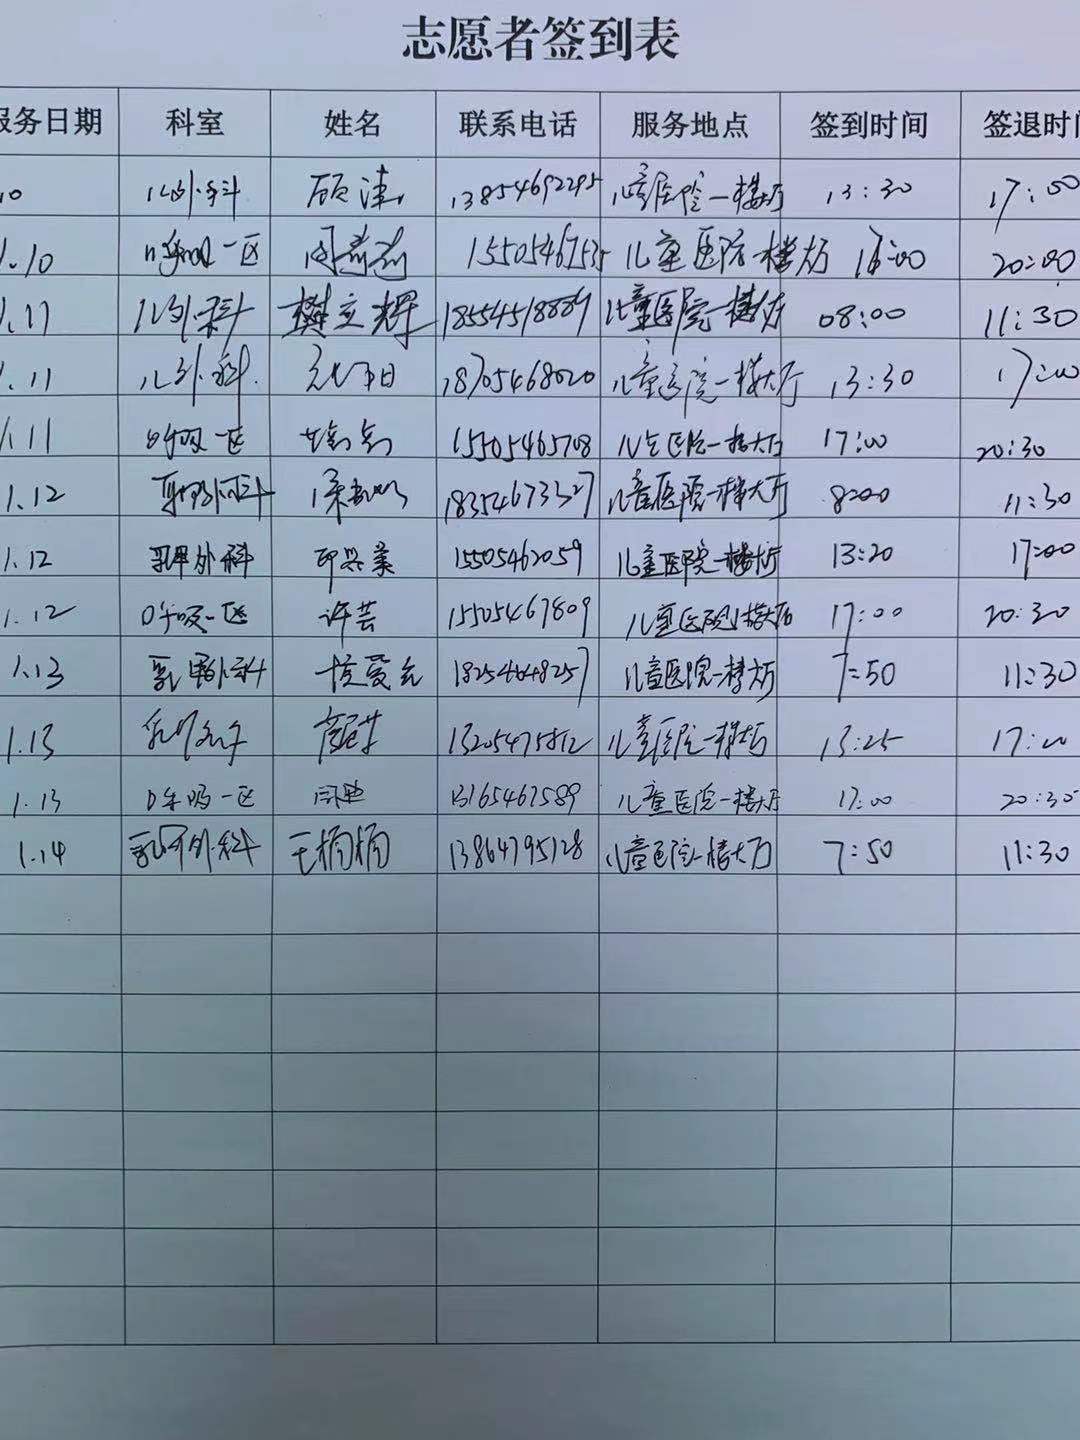 志愿者签到表
服务日期 科室 姓名 联系电话 服务地点 签到时间 签退时间
.10 儿外科 顾津 13854692295 儿童医院一楼大厅 13:30 17:00
1.10 呼吸一区 1550546753 儿童医院一楼大厅 20:00
1.11 儿外科 樊立辉 18554518889 儿童医院一楼大厅 08:00 11:30
1.11 儿外科 18705468020 儿童医院一楼大厅 13:30 17:00
1.11 呼吸一区 15505465708 儿童医院一楼大厅 17:00 20:30
1.12 18354673327 儿童医院一楼大厅 8:00 11:30
1.12 乳甲外科 15505462059 儿童医院一楼大厅 13:20 17:00
1.12 呼吸一区 许芸 15505467809 儿童医院一楼大厅 17:00 20:30
1.13 乳甲外科 18254648257 儿童医院一楼大厅 7:50 11:30
1.13 13205475812 儿童医院一楼大厅 13:25 17:00
1.13 呼吸一区 13165467589 儿童医院一楼大厅 17:00 20:30
1.14 乳甲外科 王楠楠 13864795128 儿童医院一楼大厅 7:50 11:30